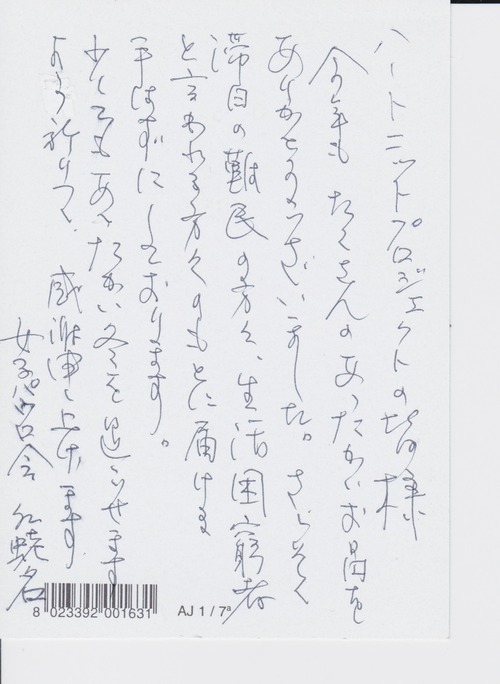 ハートニットプロジェクトの皆様
今年も たくさんのあったかいお品を
ありがとうございました。さっそく
滞日の難民の方々、生活困窮者
と言われる方々のもとに届ける
手はずにしております。
少しでもあったかい冬を過ごせます
よう祈りつつ、感謝申し上げます
女子パウロ会 海老名
8 023392 001631 AJ 1 / 7ª